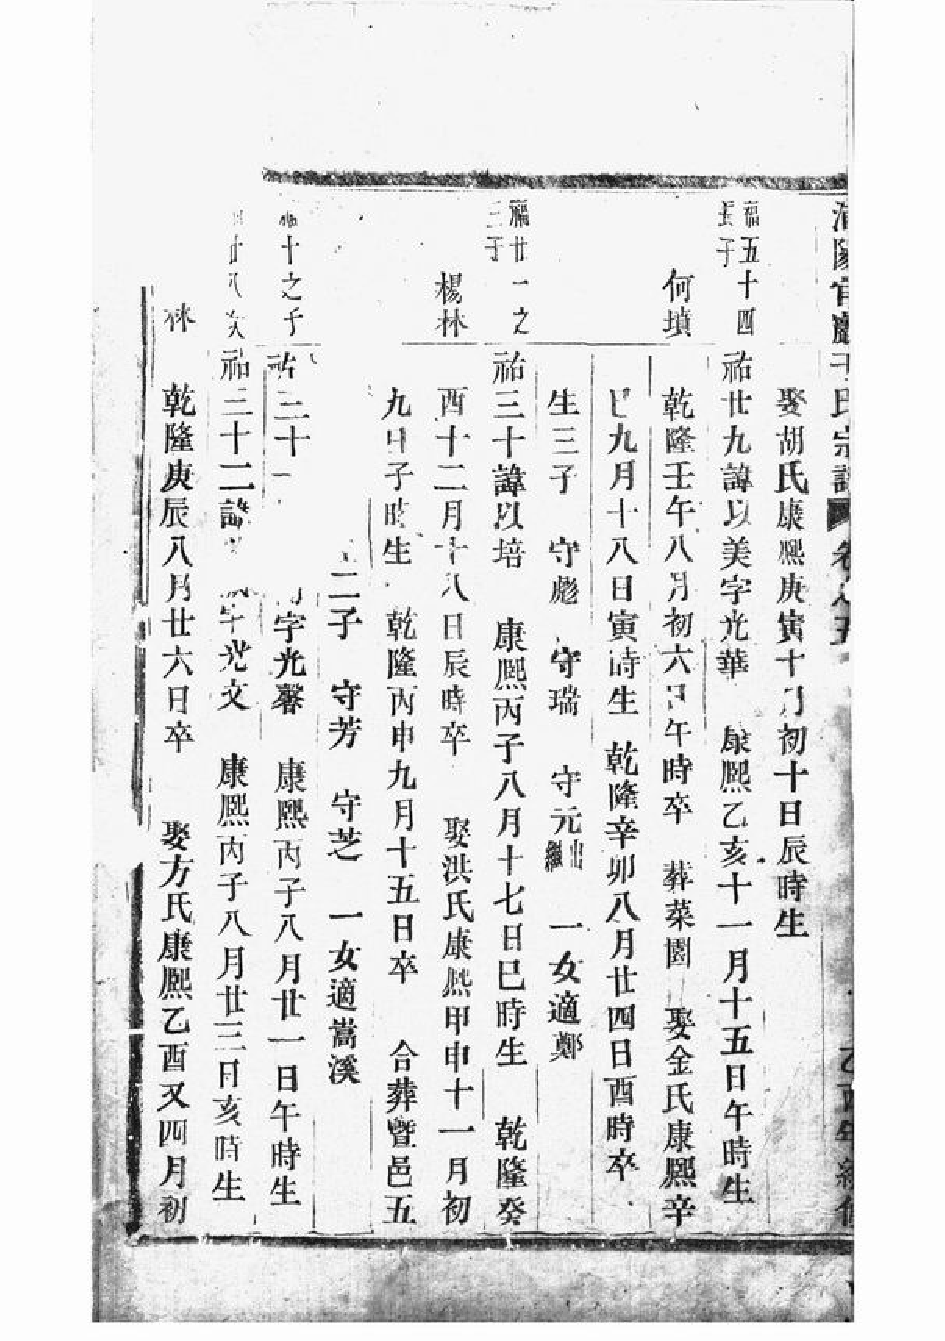 氏宗譜 卷 五 乙酉年續修
娶胡氏康熙庚寅十月初十日辰時生
福五十四
長子
祐廿九諱以美字光華 康熙乙亥十一月十五日午時生
何墳
乾隆壬午八月初六日午時卒 葬菜園 娶金氏康熙辛
巳九月十八日寅時生 乾隆辛卯八月廿四日酉時卒
生三子 守彪 守瑞 守元出繼 一女適鄭
福廿一之
三子
祐三十諱以培 康熙丙子八月十七日巳時生 乾隆癸
楊林
酉十二月十八日辰時卒 娶洪氏康熙甲申十一月初
九日子時生 乾隆丙申九月十五日卒 合葬暨邑五
二子 守芳 守芝 一女適嵩溪
十之子
祐三十一 字光馨 康熙丙子八月廿一日午時生
廿八次
祐三十二諱 字光文 康熙丙子八月廿三日亥時生
林
乾隆庚辰八月廿六日卒 娶方氏康熙乙酉又四月初